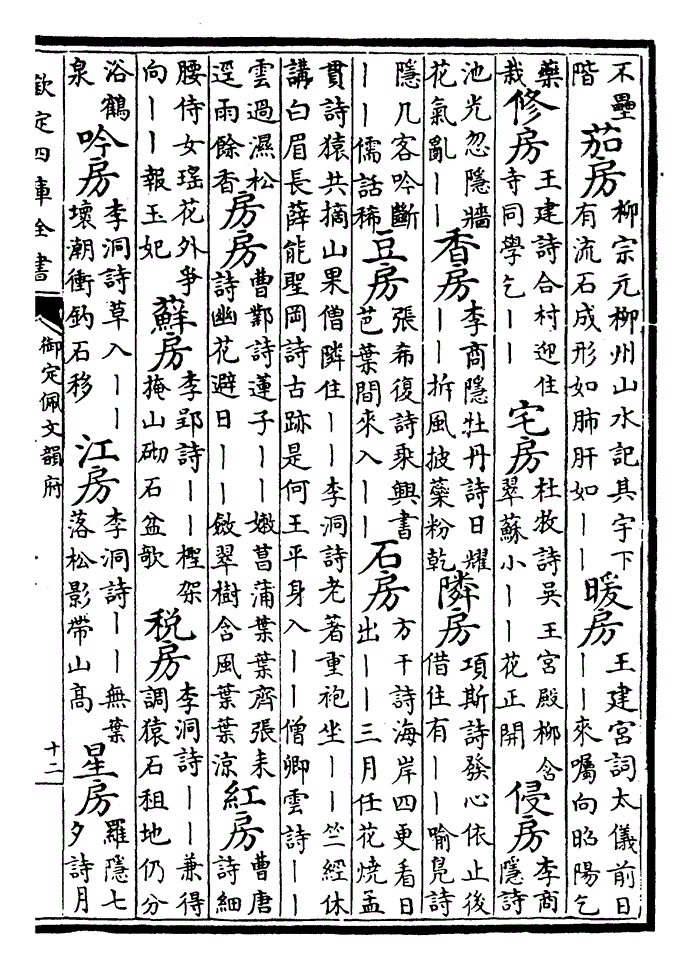 不壘階 茄房 柳宗元柳州山水記其宇下有流石成形如肺肝如丨丨 暖房 王建宮詞太儀前日丨丨來囑向昭陽乞
藥栽 修房 王建詩合村迎住寺同學乞丨丨 宅房 杜牧詩吳王宮殿柳含翠蘇小丨丨花正開 侵房 李商隱詩
池光忽隱牆花氣亂丨丨 香房 李商隱牡丹詩日耀丨丨折風披蘂粉乾 隣房 項斯詩發心依止後借住有丨丨喻鳧詩
隱几客吟斷丨丨儒話稀 豆房 張希復詩乘興書芭葉間來入丨丨 石房 方干詩海岸四更看日出丨丨三月任花燒孟
貫詩猿共摘山果僧隣住丨丨李洞詩老著重袍坐丨丨竺經休講白眉長薛能聖岡詩古跡是何王平身入丨丨僧卿雲詩丨丨
雲過濕松逕雨餘香 房房 曹鄴詩蓮子丨丨嫩菖蒲葉葉齊張耒詩幽花避日丨丨斂翠樹含風葉葉涼 紅房 曹唐詩細
腰侍女瑤花外爭向丨丨報玉妃 蘇房 李郢詩丨丨檉架掩山砌石盆欹 税房 李洞詩丨丨兼得調猿石租地仍分
浴鶴泉 吟房 李洞詩草入丨丨壞潮衝釣石移 江房 李洞詩丨丨無葉落松影帶山高 星房 羅隱七夕詩月
欽定四庫全書 御定佩文韻府 十二